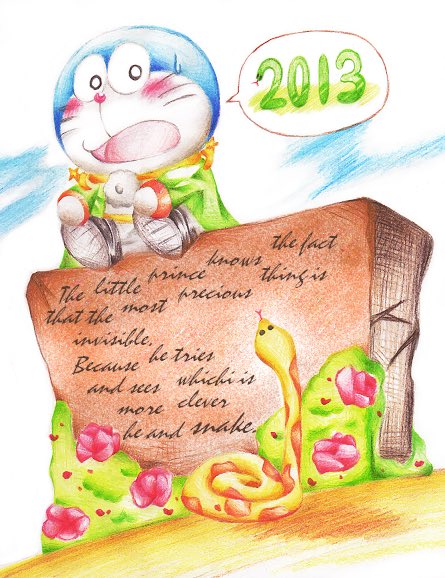 2013
The little prince knows the fact
that the most precious thing is
invisible.
Because he tries
and sees whichi is
more clever
he and snake.